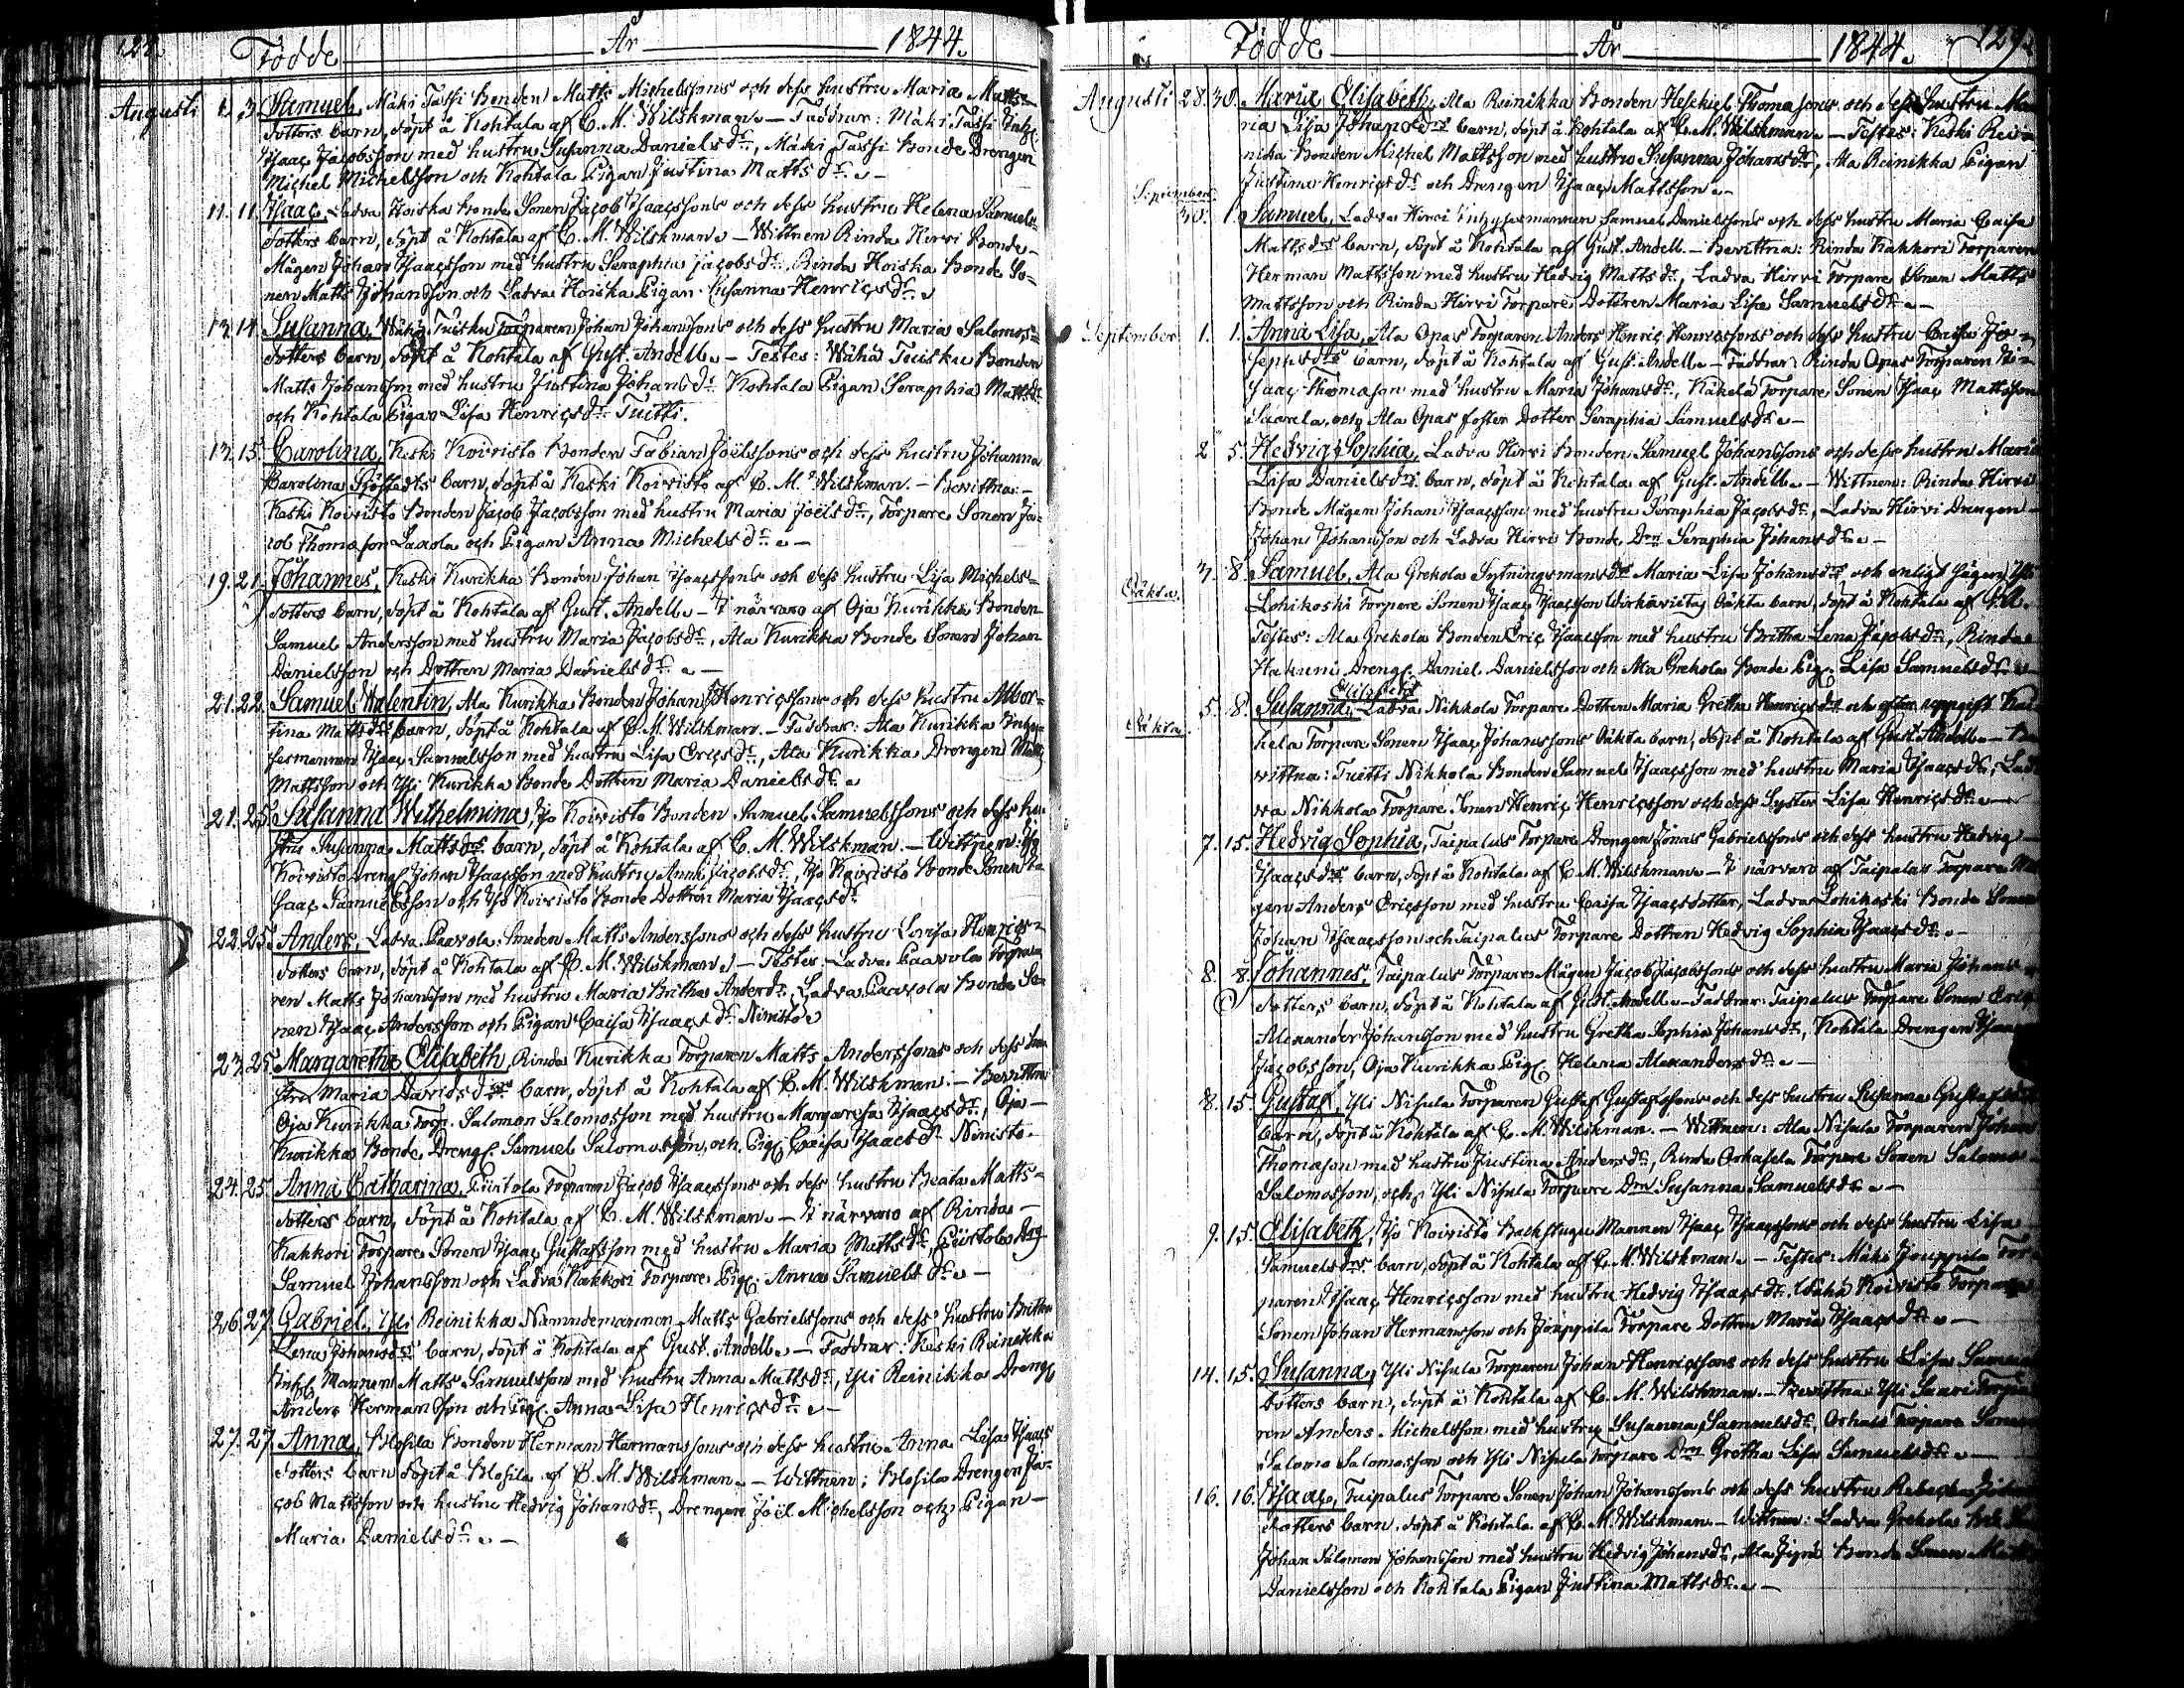 128. Födde År 1844.
Augusti 1. 3. Samuel, Mäki Jassi Bonden Matts Michelssons och dess hustru Maria Matts-
dotters barn, döpt å Kohtala af C. M. Wilskman. – Faddrar: Mäki Jassi Inhys.
Isaac Jacobsson med hustru Susanna Danielsdr, Mäki Jassi Bonde Drengen
Michel Michelsson och Kohtala Pigan Justina Mattsdr. –
11. 11. Isaac, Ladva Hoiska Bonde Sonen Jacob Isaacssons och dess hustru Helena Samuels-
dotters barn, döpt å Kohtala af C. M. Wilskman. – Wittnen Rinda Hirvi Bonde-
Mågen Johan Isaacsson med hustru Seraphia Jacobsdr, Rinda Hoiska Bonde So-
nen Matts Johansson och Ladva Hoiska Pigan Susanna Henricsdr.
13. 14. Susanna, Wähä Tuisku Torparen Johan Johanssons och dess hustru Maria Salomos-
dotters barn, döpt å Kohtala af Gust. Andell. – Testes: Wähä Tuisku Bonden
Matts Johansson med hustru Justina Johansdr Kohtala Pigan Seraphia Mattsdr
och Kohtala Pigan Lisa Henricsdr Tuitti.
13. 15. Carolina, Keski Koivisto Bonden Fabian Joëlssons och dess hustru Johanna
Carolina Sjöstedts barn, döpt å Keski Koivisto af C. M. Wilskman. – Bevittna: –
Keski Koivisto Bonden Jacob Jacobsson med hustru Maria Joëlsdr, Torpare Sonen Ja-
cob Thomasson Laxola och Pigan Anna Michelsdr. –
19. 21. Johannes, Keski Kurikka Bonden Johan Isaacssons och dess hustru Lisa Michels-
dotters barn, döpt å Kohtala af Gust. Andell. – I närvaro af Oja Kurikka Bonden
Samuel Andersson med hustru Maria Jacobsdr, Ala Kurikka Bonde Sonen Johan
Danielsson och Dottren Maria Danielsdr. –
21. 22. Samuel Walentin, Ala Kurikka Bonden Johan Henricssons och dess hustru Albor-
tina Mattsdrs barn, döpt å Kohtala af C. M. Wilskman. – Faddrar: Ala Kurikka Inhy-
sesmannen Isaac Samuelsson med hustru Lisa Ericsdr, Ala Kurikka Drengen Matts
Mattsson och Yli Kurikka Bonde Dottren Maria Danielsdr.
21. 25. Susanna Wilhelmina, Iso Koivisto Bonden Samuel Samuelssons och dess hu-
stru Susanna Mattsdrs barn, döpt å Kohtala af C. M. Wilskman. – Wittnen: Iso
Koivisto Dreng. Johan Isaacsson med hustru Anna Jacobsdr, Iso Koivisto Bonde Sonen I-
saac Samuelsson och Iso Koivisto Bonde Dottren Maria Isaacsdr
22. 25. Anders, Ladva Paavola Smeden Matts Anderssons och dess hustru Lovisa Henrics-
dotters barn, döpt å Kohtala af C. M. Wilskman. – Testes: Ladva Paavola Torpa-
ren Matts Johansson med hustru Maria Britha Andersdr, Ladva Paavola Bonde So-
nen Isaac Andersson och Pigan Caisa Isaacsdr Ninisto
23. 25. Margaretha Elisabeth, Rinda Kurikka Torparen Matts Anderssons och dess hu-
stru Maria Davidsdrs barn, döpt å Kohtala af C. M. Wilskman. – Bevittna
Oja Kurikka Torp. Salomon Salomosson med hustru Margareta Isaacsdr, Oja-
Kurikka Bonde Dreng. Samuel Salomosson, och Pig. Caisa Isaacsdr Ninisto.
24. 25. Anna Catharina, Piirtola Torparen Jacob Isaacssons och dess hustru Beata Matts-
dotters barn, döpt å Kohtala af C. M. Wilskman. – I närvaro af Rinda-
Kakkori Torpare Sonen Isaac Gustafsson med hustru Maria Mattsdr, Piirtola Drg
Samuel Johansson och Ladva Kakkori Torpare Pig. Anna Samuelsdr. –
26. 27. Gabriel, Yli Reinikka Nämndemannen Matts Gabrielssons och dess hustru Britha
Lena Johansdrs barn, döpt å Kohtala af Gust. Andell. – Faddrar: Keski Reinikka
Inhys Mannen Matts Samuelsson med hustru Anna Mattsdr, Yli Reinikka Dreng.
Anders Hermansson och Pig. Anna Lisa Henricsdr. –
27. 27. Anna, Blosila Bonden Herman Hermanssons och dess hustru Anna Lisa Isaacs
dotters barn döpt å Blosila af C. M. Wilskman. – Wittnen: Blosila Drengen Ja-
cob Mattsson och hustru Hedvig Johansdr, Drengen Joël Michelsson och Pigan –
Maria Danielsdr. –
Födde År 1844. 129.
Augusti 28. 30. Maria Elisabeth, Ala Reinikka Bonden Heskiel Thomassons och dess hustru Ma-
ria Lisa Johansdrs barn, döpt å Kohtala af C. M. Wilskman. – Testes: Keski Rei-
nika Bonden Michel Mattsson med hustru Susanna Johansdr, Ala Reinikka Pigan
Justina Henricsdr och Drengen Isaac Mattsson. –
September
30. 1. Samuel, Ladva Hirvi Inhysesmannen Samuel Danielssons och dess hustru Maria Caisa
Mattsdrs barn, döpt å Kohtala af Gust. Andell. – Bevittna: Rinda Kakkori Torparen
Herman Mattsson med hustru Hedvig Mattsdr, Ladva Hirvi Torpare Sonen Matts
Mattsson och Rinda Hirvi Torpare Dottren Maria Lisa Samuelsdr. –
September 1. 1. Anna Lisa, Ala Opas Torparen Anders Henric Henricssons och dess hustru Caisa Jo-
sephsdrs barn, döpt å Kohtala af Gust. Andell. – Faddrar: Rinda Opas Torparen I-
saac Thomasson med hustru Maria Johansdr, Käkelä Torpare Sonen Isaac Mattsson
Saarela och Ala Opas foster Dotter Seraphia Samuelsdr. –
2. 5. Hedvig Sophia, Ladva Hirvi Bonden Samuel Johanssons och dess hustru Maria
Lisa Danielsdrs barn, döpt å Kohtala af Gust. Andell. – Wittnen: Rinda Hirvi
Bonde Mågen Johan Isaacsson med hustru Seraphia Jacobsdr, Ladva Hirvi Drengen –
Johan Johansson och Ladva Hirvi Bonde Drn Seraphia Johansdr. –
Oäkta. 3. 8. Samuel, Ala Grekola Sytningsmansdr Maria Lisa Johansdrs och enligt sägen Yli
Lohikoski Torpare Sonen Isaac Isaacsson Oäkta barn, döpt å Kohtala af G. A.
Testes: Ala Grekola Bonden Eric Isaacsson med hustru Britha Lena Jacobsdr, Rinda
Hakuni Dreng. Daniel Danielsson och Ala Grekola Bonde Pig. Lisa Samuelsdr. –
Elisabeth
Oäkta. 5. 8. Susanna, Ladva Nikkola Torpare Dottren Maria Gretha Henricsdrs och efter uppgift
hela Torpare Sonen Isaac Johanssons Oäkta barn, döpt å Kohtala af Gust. Andell. – Be-
vittna: Tuitti Nikkola Bonden Samuel Isaacsson med hustru Maria Isaacsdr, Lad-
va Nikkola Torpare Sonen Henric Henricsson och dess Syster Lisa Henricsdr. –
7. 15. Hedvig Sophia, Taipalus Torpare Drengen Jonas Gabrielssons och dess hustru Hedvig –
Isaacsdrs barn, döpt å Kohtala af C. M. Wilskman. – I närvaro af Taipalus Torpare Må-
gen Anders Ericsson med hustru Caisa Isaacsdotter, Ladva Lohikoski Bonde Sonen
Johan Isaacsson och Taipalus Torpare Dottren Hedvig Sophia Isaacsdr. –
8. 8. Johannes, Taipalus Torpare Mågen Jacob Jacobssons och dess hustru Maria Johans-
dotters barn, döpt å Kohtala af Gust. Andell. – Faddrar: Taipalus Torpare Sonen Eric
Alexander Johansson med hustru Gretha Sophia Johansdr, Kohtala Drengen Isaac
Jacobsson, Oja Kurikka Pig. Helena Alexandersdr. –
8. 15. Gustaf, Yli Nisula Torparen Gustaf Gustafssons och dess hustru Susanna Gustafsdrs
barn, döpt å Kohtala af C. M. Wilskman. – Wittnen: Ala Nisula Torparen Johan
Thomasson med hustru Justina Andersdr, Rinda Torpare Sonen Salomo –
Salomosson, och Yli Nisula Torpare Drn Susanna Samuelsdr. –
9. 15. Elisabeth, Iso Koivisto Backstugu Mannen Isaac Isaacssons och dess hustru Lisa
Samuelsdrs barn, döpt å Kohtala af C. M. Wilskman. – Testes: Mäki Jouppila Tor-
paren Isaac Henricsson med hustru Hedvig Isaacsdr, Wähä Koivisto Torpare
Sonen Johan Hermansson och Jouppila Torpare Dottren Maria Isaacsdr. –
14. 15. Susanna, Yli Nisula Torparen Johan Henricssons och dess hustru Lisa Samuels
dotters barn, döpt å Kohtala af C. M. Wilskman. – Bevittna: Yli Saari Torpa-
ren Anders Michelsson med hustru Susanna Samuelsdr, Torpare Sonen
Salomo Salomosson och Yli Nisula Torpare Drn Gretha Lisa Samuelsdr. –
16. 16. Isaac, Taipalus Torpare Sonen Johan Johanssons och dess hustru Rebecka Johans
dotters barn, döpt å Kohtala af C. M. Wilskman. – Wittnen: Ladva Grekola
Johan Salomon Johansson med hustru Hedvig Johansdr, Ala Jyrä Bonde Sonen Matts
Danielsson och Kohtala Pigan Justina Mattsdr. –